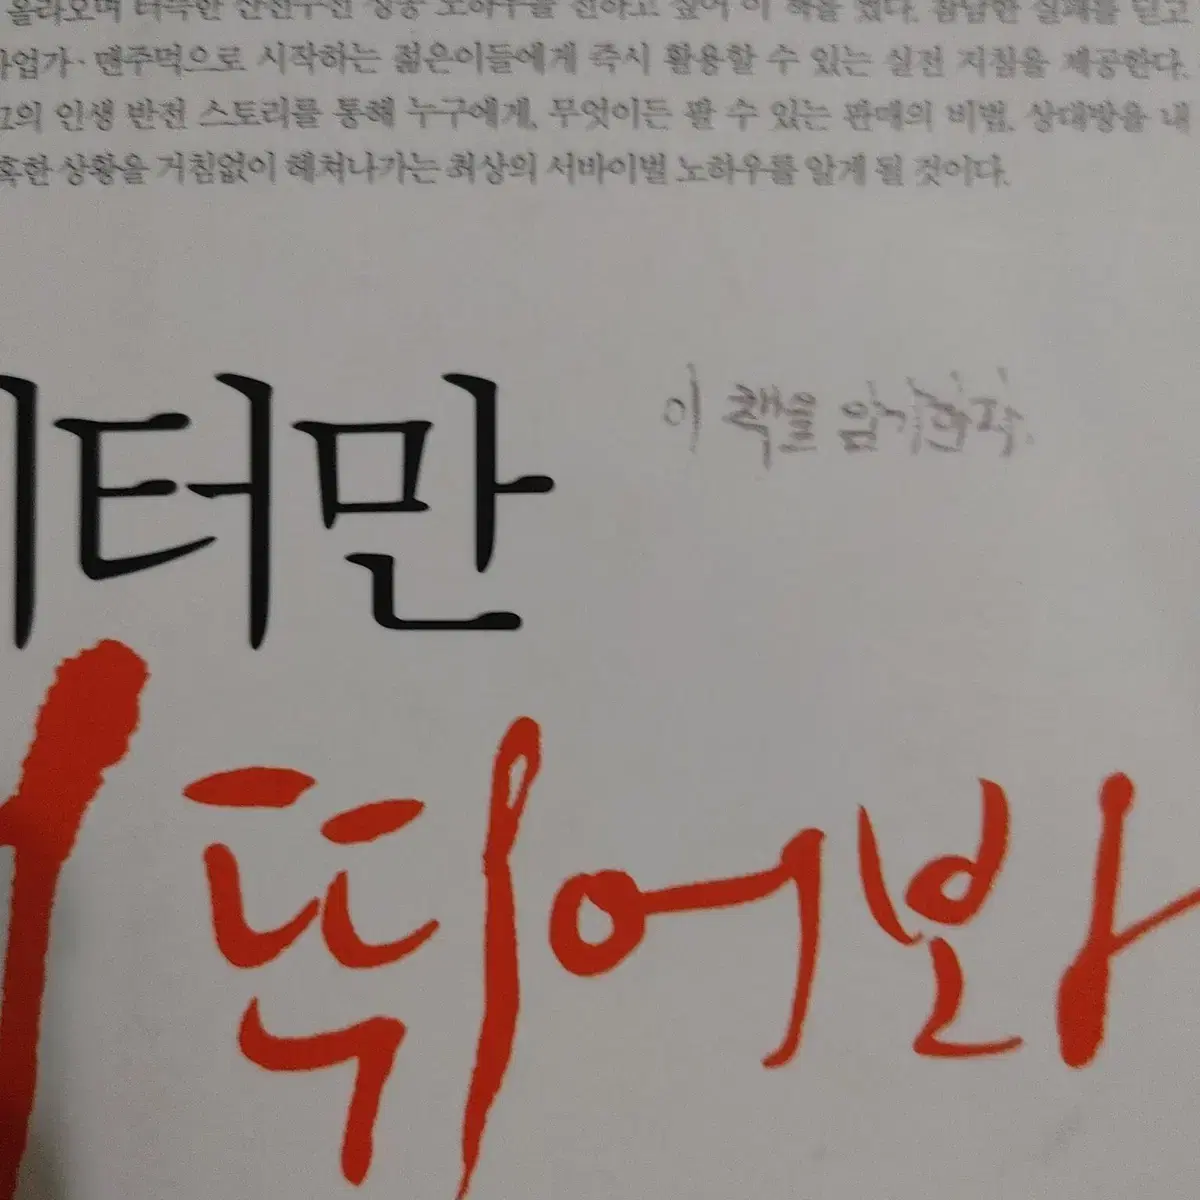 올라오며 터득한 산전수전 성공 노하우를 전하고 싶어 이 책을 썼다. 참담한 실패를 딛고
사업가·맨주먹으로 시작하는 젊은이들에게 즉시 활용할 수 있는 실전 지침을 제공한다.
그의 인생 반전 스토리를 통해 누구에게, 무엇이든 팔 수 있는 판매의 비법, 상대방을 내
혹한 상황을 거침없이 헤쳐나가는 최상의 서바이벌 노하우를 알게 될 것이다.
미터만
이 책을 암기하자.
더 뛰어봐